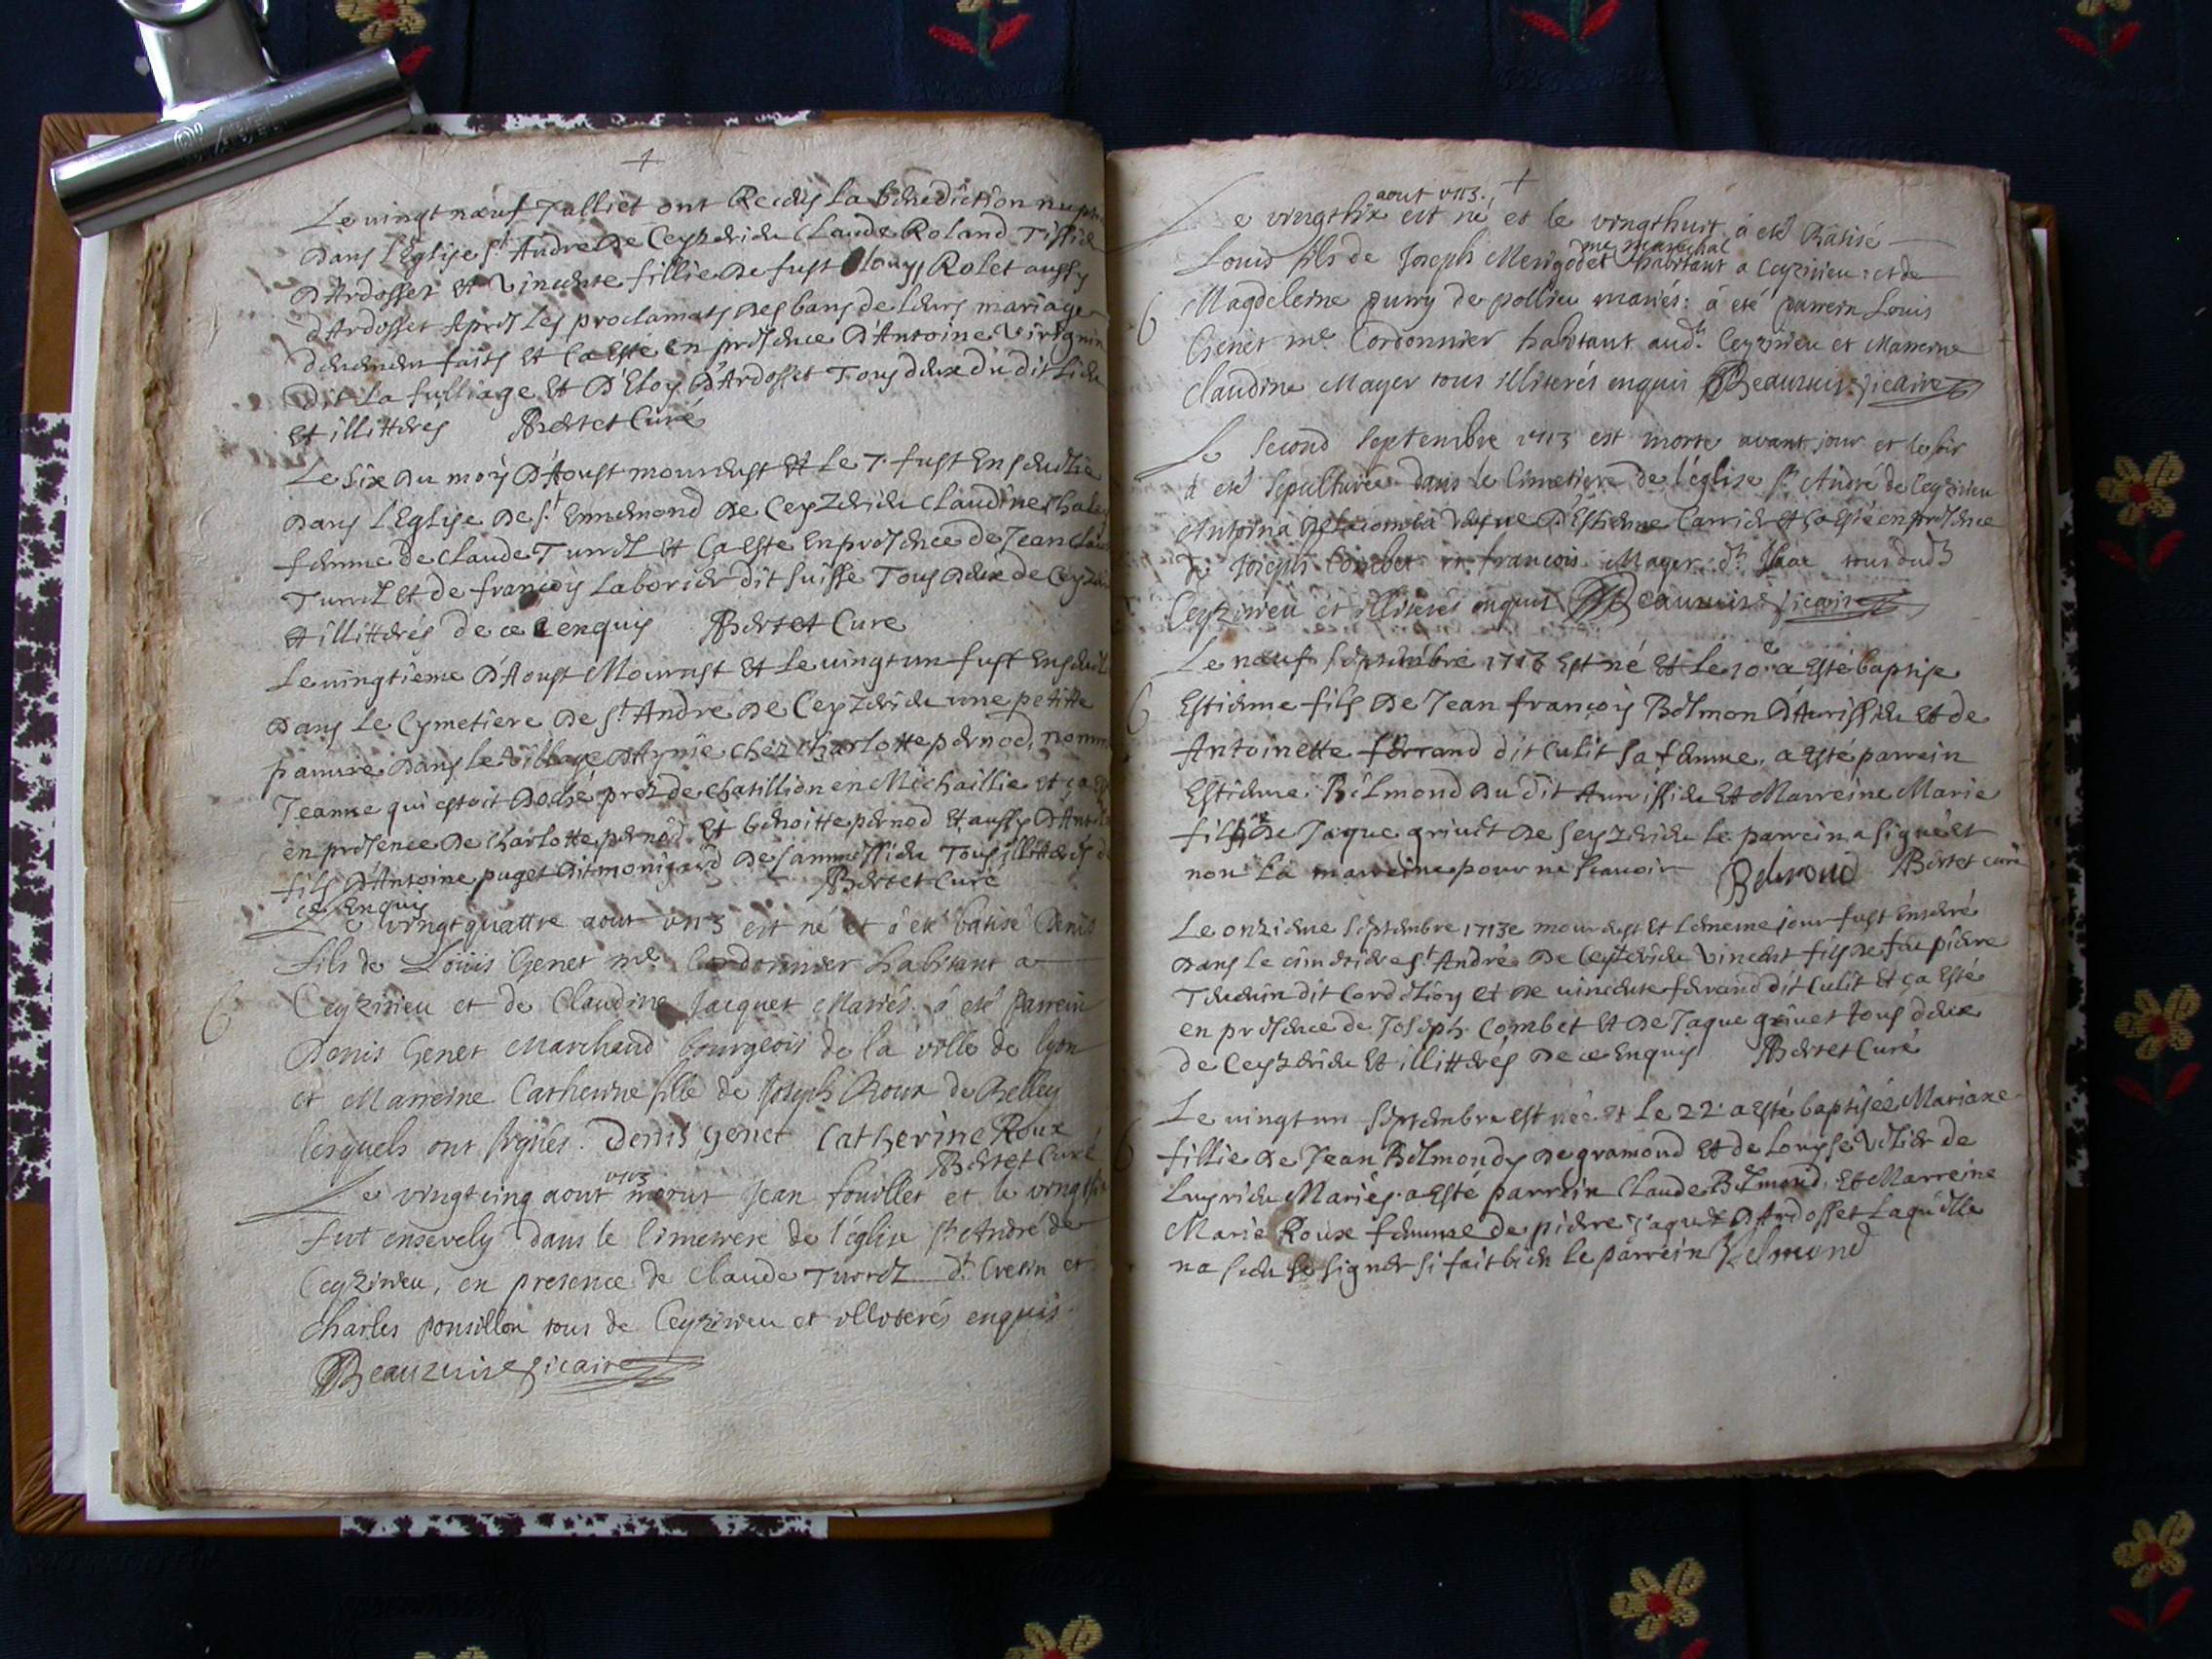 Le vingt nœuf Jalliet ont Receus la benediction nupt
Dans l'Eglise St André De Ceyzerieu Claude Roland Tissie
D'Ardosset et Vincente fillie De fust Louys Rolet aussy
d'Ardosset Apres les proclamats des bans de leurs mariage
deuement faits et ca este en presence D'Antoine Virignin
Dit La fulliage et D'Eloy D'Ardosset Tous deux du dit Lieu
et illitterés Bertet Curé
Le six du moy D'Aoust mourust et Le 7. fust Ensevelie
Dans l'Eglise De St Ennemond De Ceyzerieu Claudine
femme de Claude Turrel et Ca este En presence de Jean
Turrel et de françoy Laborier dit Suisse Tous deux de Ceyze
et illitterés de ce enquis Bertet Cure
Le vingtieme D'Aoust Mourust et Le vingt un fust Ensevel
Dans Le Cymetiere De St André De Ceyzerieu une petitte
pauvre Dans le village chez Charlotte pernod, nomm
Jeanne qui estoit prez de chatillion en Michaillie et ça
en presence De Charlotte pernod et benoitte pernod et aussy
fils D'Antoine puget Dit monigard De Tous illitterés
ce Enquis Bertet Curé
Le vingt quattre aout 1713 est né et a eté batisé Denis
fils de Loüis Genet me Cordonnier habitant a
Ceyzirieu et de Claudine Jacquet Mariés. a eté parrein
Denis Genet Marchand bourgeois de la ville de lyon
et Marreine Catherine fille de Joseph Roux de Belley
lesquels ont signés. Denis genet Catherine Roux
Bertet Curé
1713
Le vingt cinq aout morut Jean fouillet et le vingt
fut ensevely dans le Cimetiere de l'église St André de
Ceyzirieu, en presence de Claude Turrel dt Cretin et
Charles ponsillon tous de Ceyzirieu et illiterés enquis
Beauzuire vicaire
aout 1713.
Le vingt six est né et le vingt huit a eté Batisé
me marechal
Louis fils de Joseph Merigodet habitant a Ceyzirieu: et de
Magdeleine de pollieu mariés: a été parrein Louis
Genet me Cordonnier habitant audt Ceyzirieu et Marreine
Claudine Mayer tous illiterés enquis Beauzuire vicaire
Le second septembre 1713 est morte avant jour et le soir
a eté sepulturée dans le Cimetiere de l'église St André de Ceyzirieu
Antoina Delacombe vefve D'Estienne Carrier et Ca Esté en presence
de Joseph Combet et francois Mayer dt tous dudt
Ceyzirieu et illiterés enquis Beauzuire vicaire
Le nœuf Septembre 1713 Est né et Le 10e a Esté baptisé
Estienne fils De Jean françoy Belmon D'Avrissieu et de
Antoinette ferrand dit Culit sa femme. a Esté parrein
Estienne Belmond Du dit Avrissieu et Marreine Marie
fille De Jaque grivet De Ceyzerieu le parrein a signé et
non La marreine pour ne scavoir Belmond Bertet curé
Le onzieme Septembre 1713e mourust et Le meme jour fust Enterré
Dans le cimetiere St André De Ceyzerieu Vincent fils De fue pierre
dit Cordelioy et De vincente ferrand dit Culit et ça Esté
en presence de Joseph Combet et De Jaque grivet tous deux
de Ceyzerieu et illitterés De ce Enquis Bertet Curé
Le vingt un Septembre est née et Le 22. a esté baptisée Mariane
fillie De Jean Belmondy De gramond et de Louyse Velier de
Luyrieu Mariés. a Esté parrein Claude Belmond, et Marreine
Marie Roux femme de pierre Jaquet D'Ardosset Laquelle
na sceu se signer si fait bien le parrein Belmond